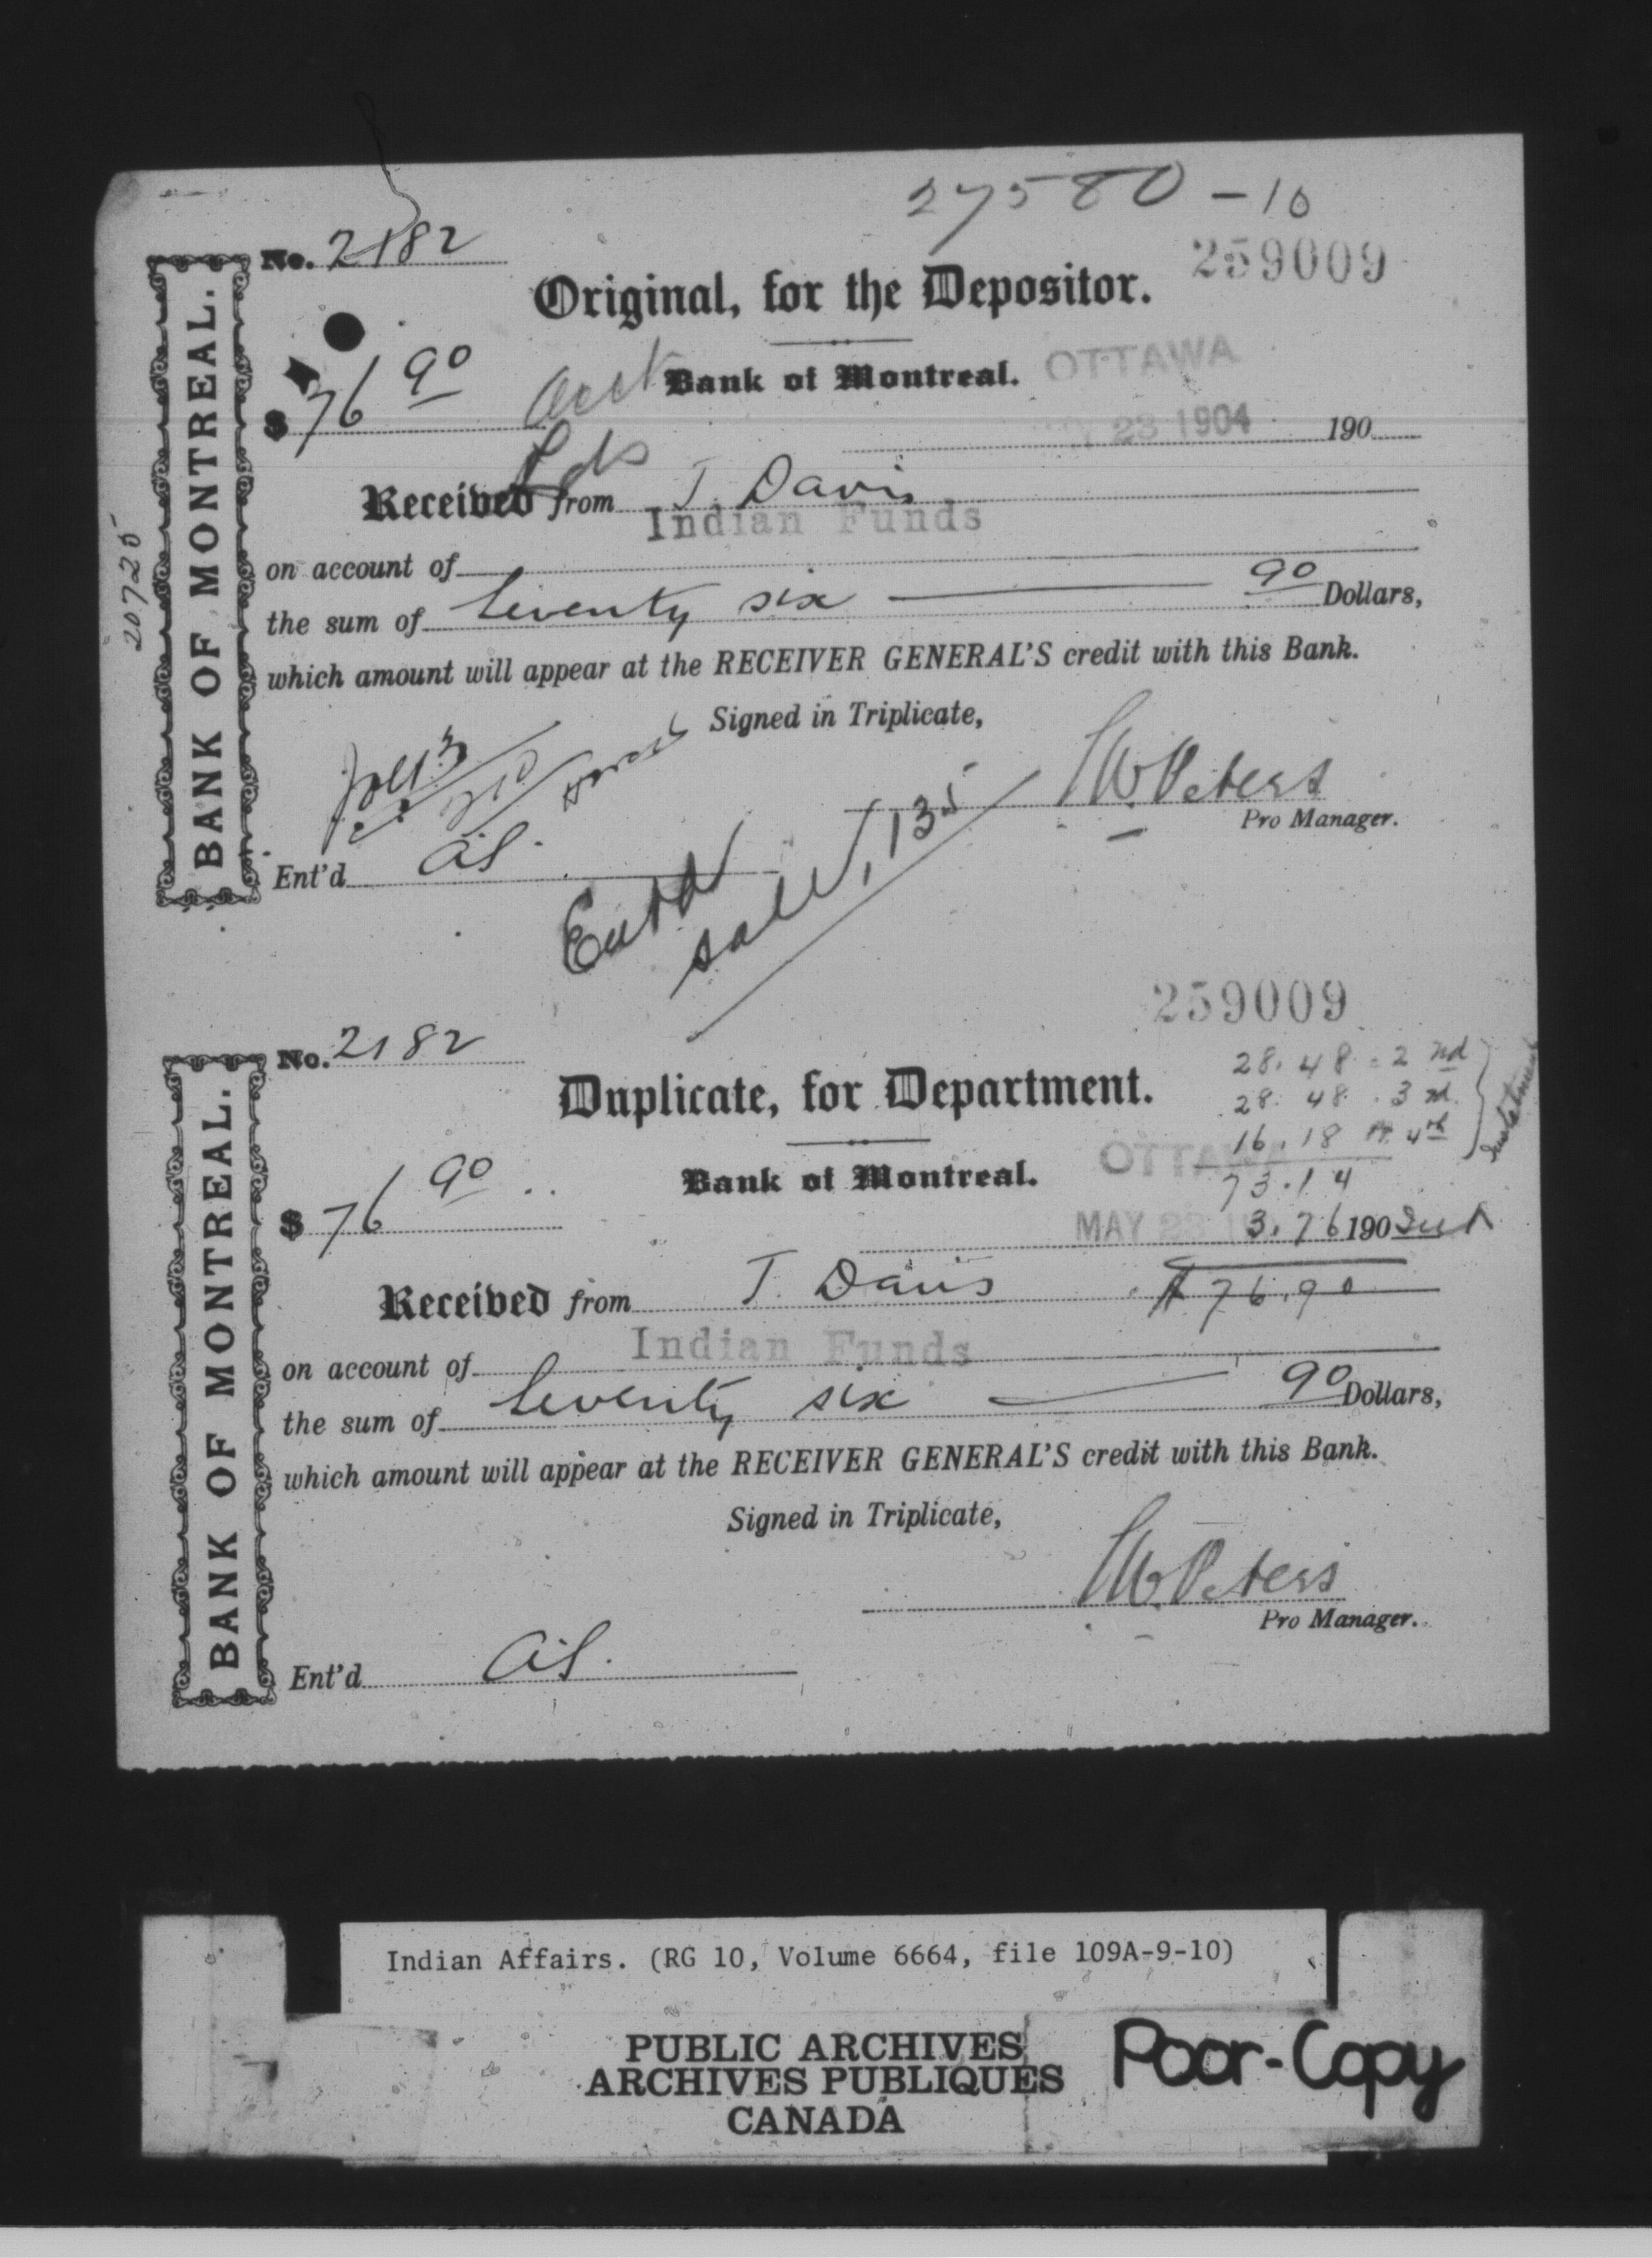 27580-10
No. 2182
259009
Original, for the Depositor.
$76 90
Acct
Bank of Montreal.
OTTAWA
23 1904
190
Lds
Received from J. Davis
Indian Funds
on account of
the sum of Seventy six 90 Dollars,
which amount will appear at the RECEIVER GENERAL'S credit with this Bank.
Signed in Triplicate,
Pro Manager.
Ent'd
Entd
sales, 135
BANK OF MONTREAL.
20725
259009
No. 2182
28.48 = 2nd
Duplicate, for Department.
28.48 . 3rd
16.18 4th
Instalment
OTTAWA
73.14
Bank of Montreal.
$76 90
MAY 23
3.76 190 Int
Received from J. Davis
$76.90
Indian Funds
on account of
the sum of Seventy six 90 Dollars,
which amount will appear at the RECEIVER GENERAL'S credit with this Bank.
Signed in Triplicate,
Pro Manager.
Ent'd
BANK OF MONTREAL.
Indian Affairs. (RG 10, Volume 6664, file 109A-9-10)
PUBLIC ARCHIVES
ARCHIVES PUBLIQUES
CANADA
Poor-Copy